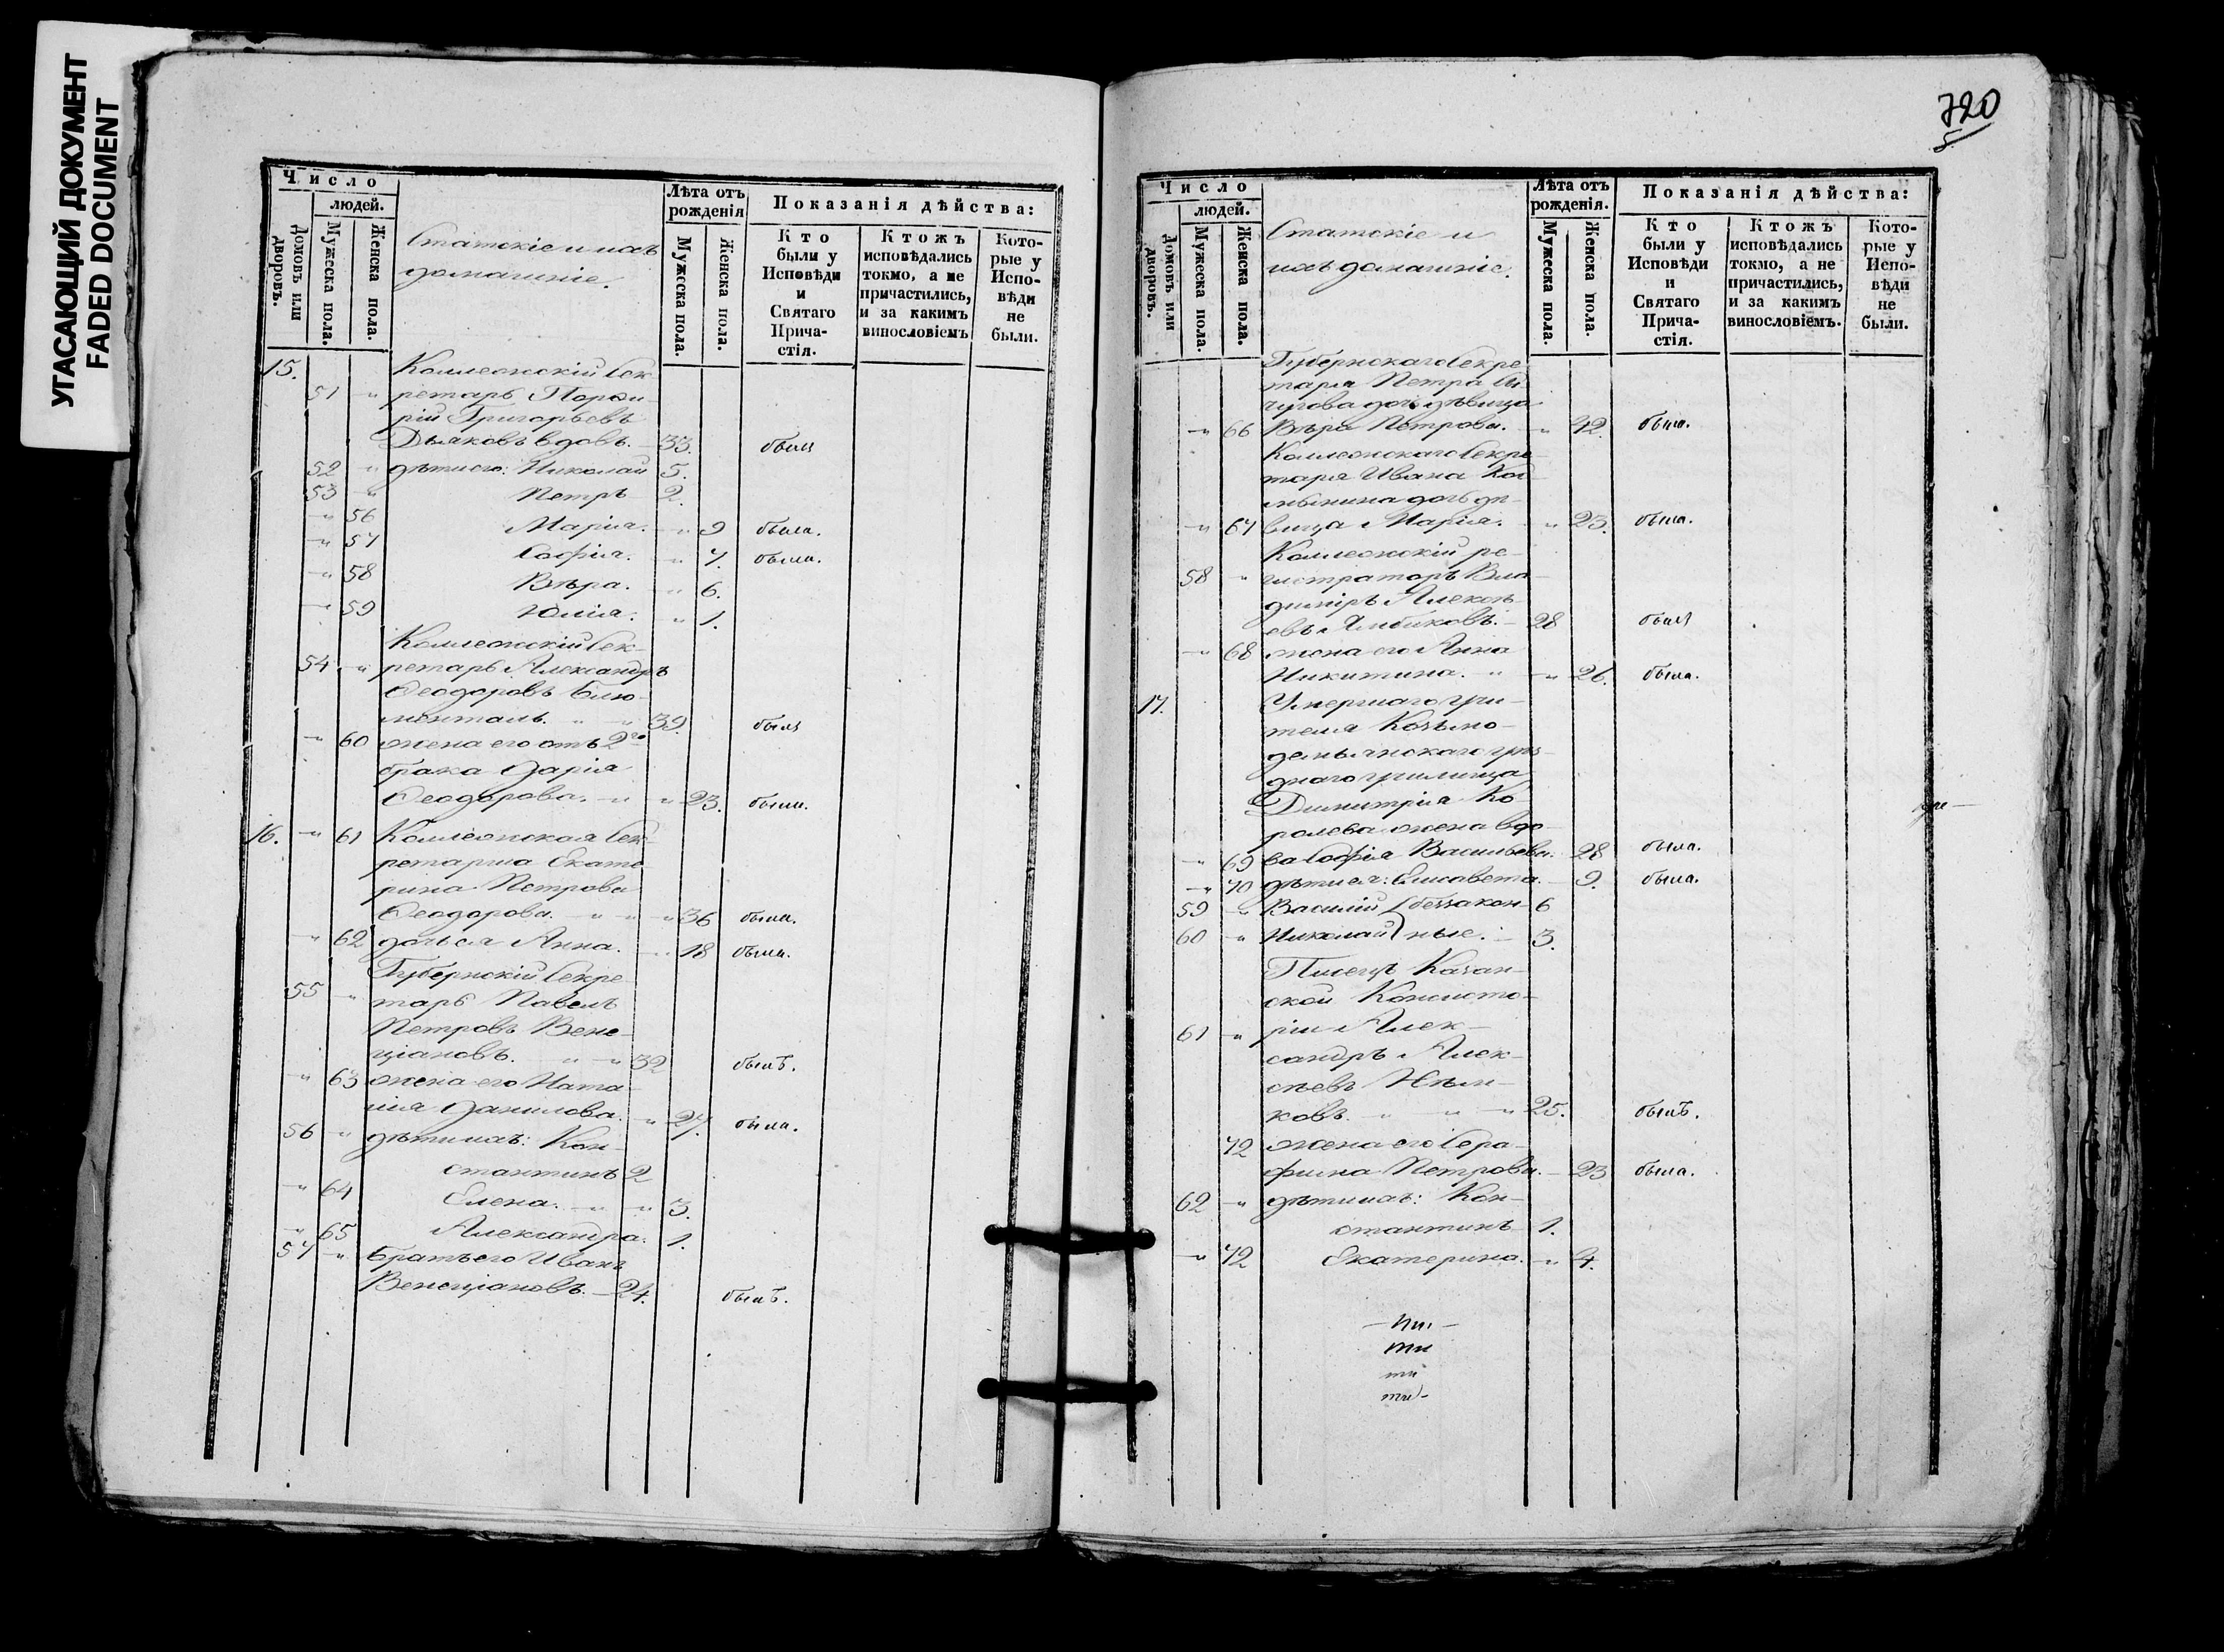 УГАСАЮЩИЙ ДОКУМЕНТ
FADED DOCUMENT
Число
людей.
Домовъ или дворовъ.
Мужеска пола.
Женска пола.
Статскіе и ихъ
домашніе.
Лѣта отъ
рожденія
Мужеска пола.
Женска пола.
Показанія дѣйства:
Кто
были у
Исповѣди
и
Святаго
Прича-
стія.
Ктожъ
исповѣдались
токмо, а не
причастились,
и за какимъ
винословіемъ
Кото-
рые у
Испо-
вѣди
не
были.
15. Коллежскій Сек-
51 „ ретарь Порфи-
рій Григорьевъ
Дьяковъ вдовъ. 33. былъ
52 „ дѣти его: Николай 5.
53 „ Петръ 2.
„ 56 Марія. „ 9 была.
„ 57 Софія. „ 7. была.
„ 58 Вѣра. „ 6.
„ 59 Юлія. „ 1.
Коллежскій Сек-
54 „ ретарь Александръ
Ѳеодоровъ Блю-
менталь. „ „ 39. былъ
„ 60 жена его отъ 2го
брака Дарія
Ѳеодорова. „ „ 23. была.
16. „ 61 Коллежская Сек-
ретарша Екате-
рина Петрова
Ѳеодорова. „ „ „ 36 была.
„ 62 дочь ея Анна. „ 18 была.
Губернскій Секре-
55 „ тарь Павелъ
Петровъ Вене-
ціановъ. „ „ 32 былъ.
„ 63 жена его Ната-
лія Данилова. „ 27. была.
56 „ дѣти ихъ: Кон-
стантинъ 2
„ 64 Елена. „ „ 3.
„ 65 Александра. 1.
57 „ Братъ его Иванъ
Венеціановъ. 24. былъ.
720
Число
людей.
Домовъ или дворовъ.
Мужеска пола.
Женска пола.
Статскіе и
ихъ домашніе.
Лѣта отъ
рожденія.
Мужеска пола.
Женска пола.
Показанія дѣйства:
Кто
были у
Исповѣди
и
Святаго
Прича-
стія.
Ктожъ
исповѣдались
токмо, а не
причастились,
и за какимъ
винословіемъ.
Кото-
рые у
Испо-
вѣди
не
были.
Губернскаго Секре-
таря Петра
дочь дѣвица
„ 66 Вѣра Петрова. „ 42. была.
Коллежскаго Секре-
таря Ивана
дочь дѣ-
„ 67 вица Марія. „ 23. была.
Коллежскій ре-
58 „ гистраторъ Вла-
диміръ Алексѣ-
евъ 28 былъ
„ 68 жена его Анна
Никитина. „ „ 26. была.
17. Умершаго учи-
теля Козьмо-
демьянскаго уѣз-
днаго училища
Димитрія Ко-
ролева жена вдо-
„ 69 ва Софія Васильева. 28 была.
„ 70 дѣти ея: Елисавета. 9. была.
59 „ Василій беззакон- 6
60 „ Николай ные. 3.
Писецъ Казан-
ской Консисто-
61 „ ріи Алек-
сандръ Алек-
сѣевъ
ковъ. „ „ „ 25. былъ.
72 жена его Сера-
фима Петрова. 23 была.
62 „ дѣти ихъ: Кон-
стантинъ 1.
„ 72 Екатерина. „ 4.